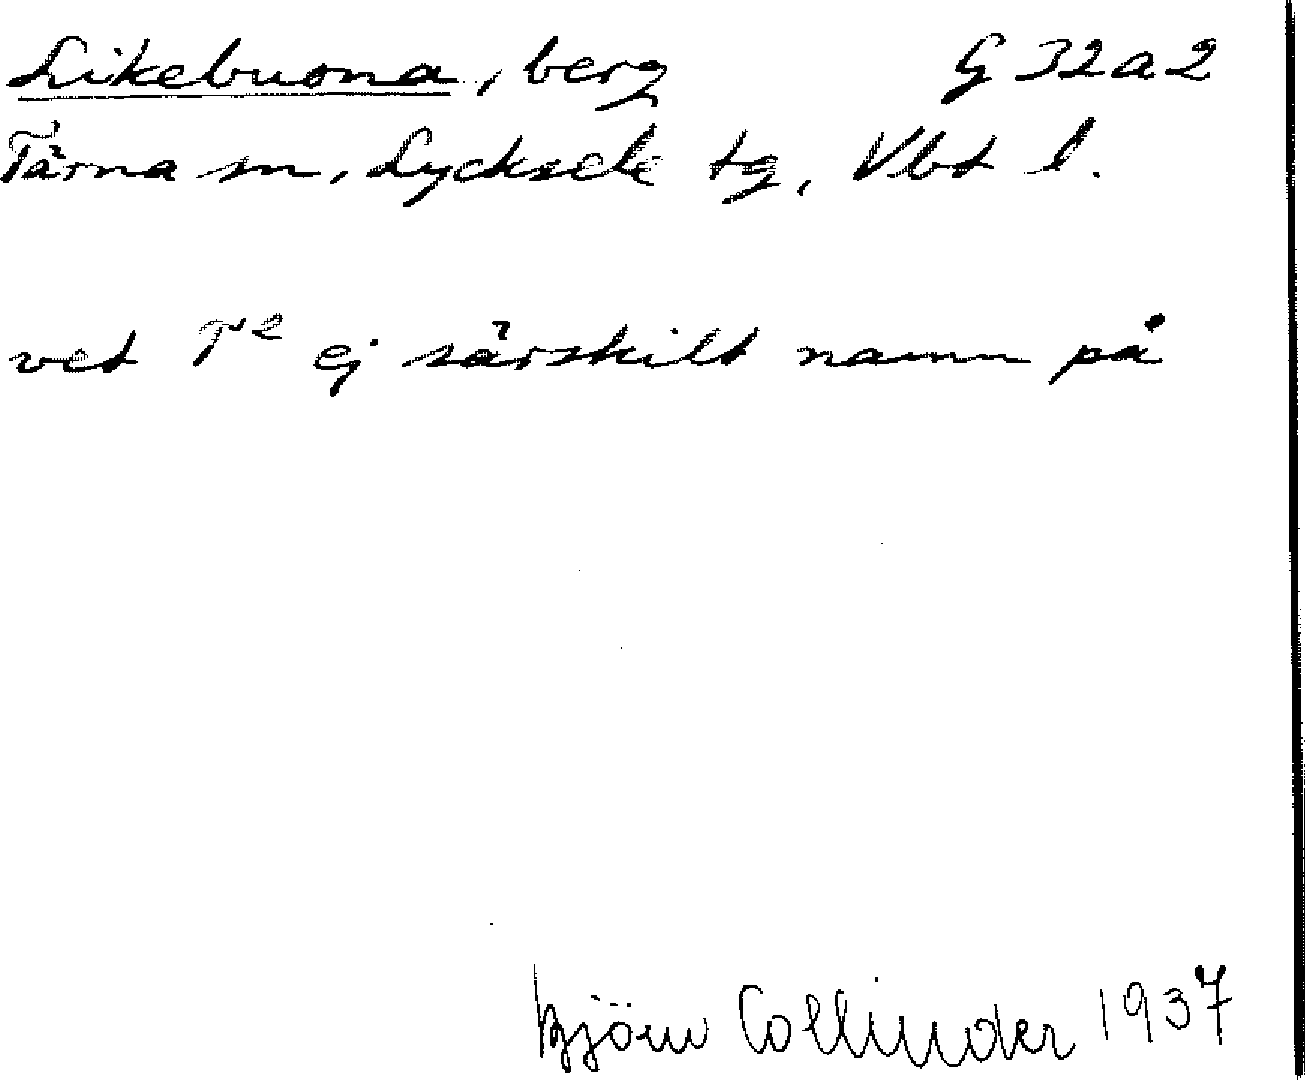 Likebuona, berg G 32 a 2
Tärna sn, Lycksele tg, Vbt l.
vet T² ej särskilt namn på
Björn Collinder 1937